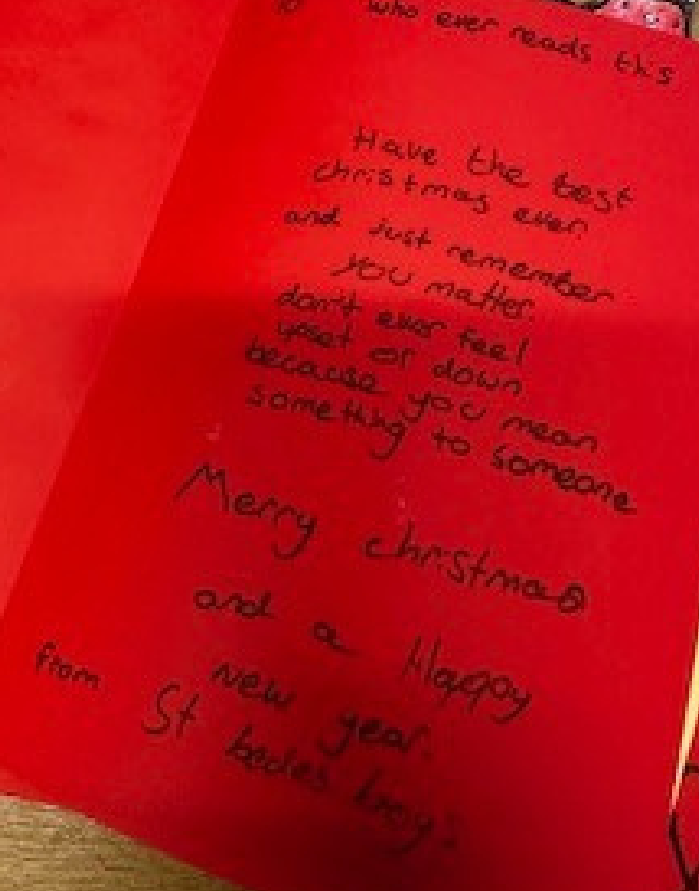 who ever reads this
Have the best
christmas ever
and just remember
you matter
don't ever feel
upset or down
because you mean
something to someone
Merry christmas
and a Happy
New year.
from St bedes